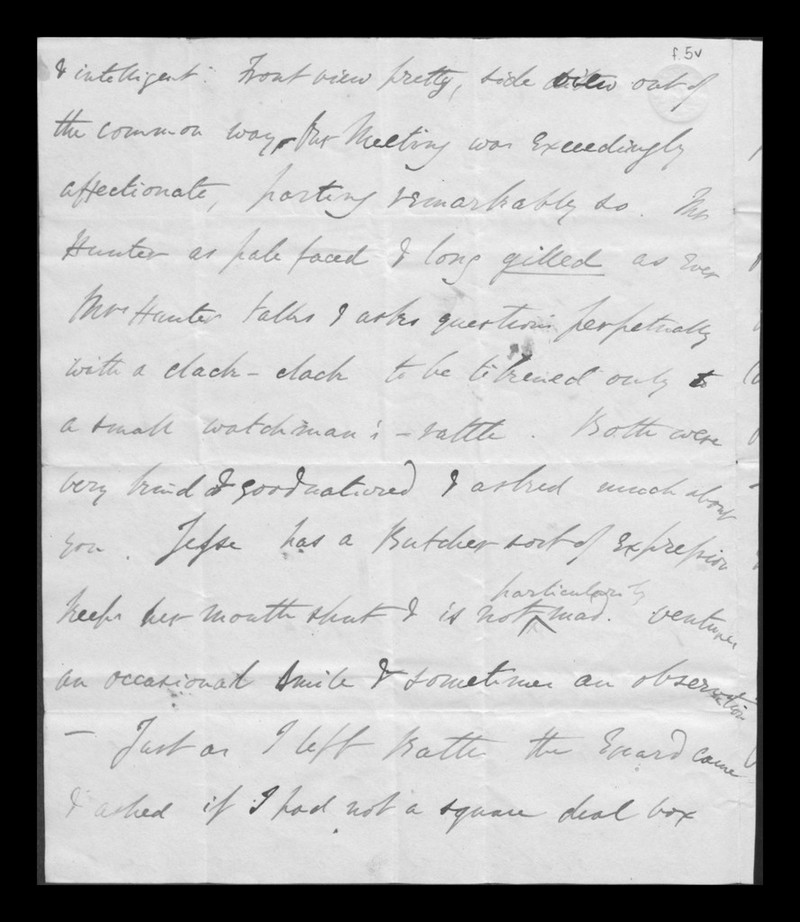 f. 5v
& intelligent. Front view pretty, side view out of
the common way, Our Meeting was exceedingly
affectionate, parting remarkably so. Mr
Hunter as pale faced & long gilled as ever
Mrs Hunter talks & asks questions perpetually
with a clack-clack to be likened only to
a small watchman's-rattle. Both were
very kind & goodnatured & asked much about
you. Jesse has a Butcher sort of expression
keeps her mouth shut & is not
particularly
mad. ventures
an occasional smile & sometimes an observation
- Just as I left Bath the Guard came
& asked if I had not a square deal box